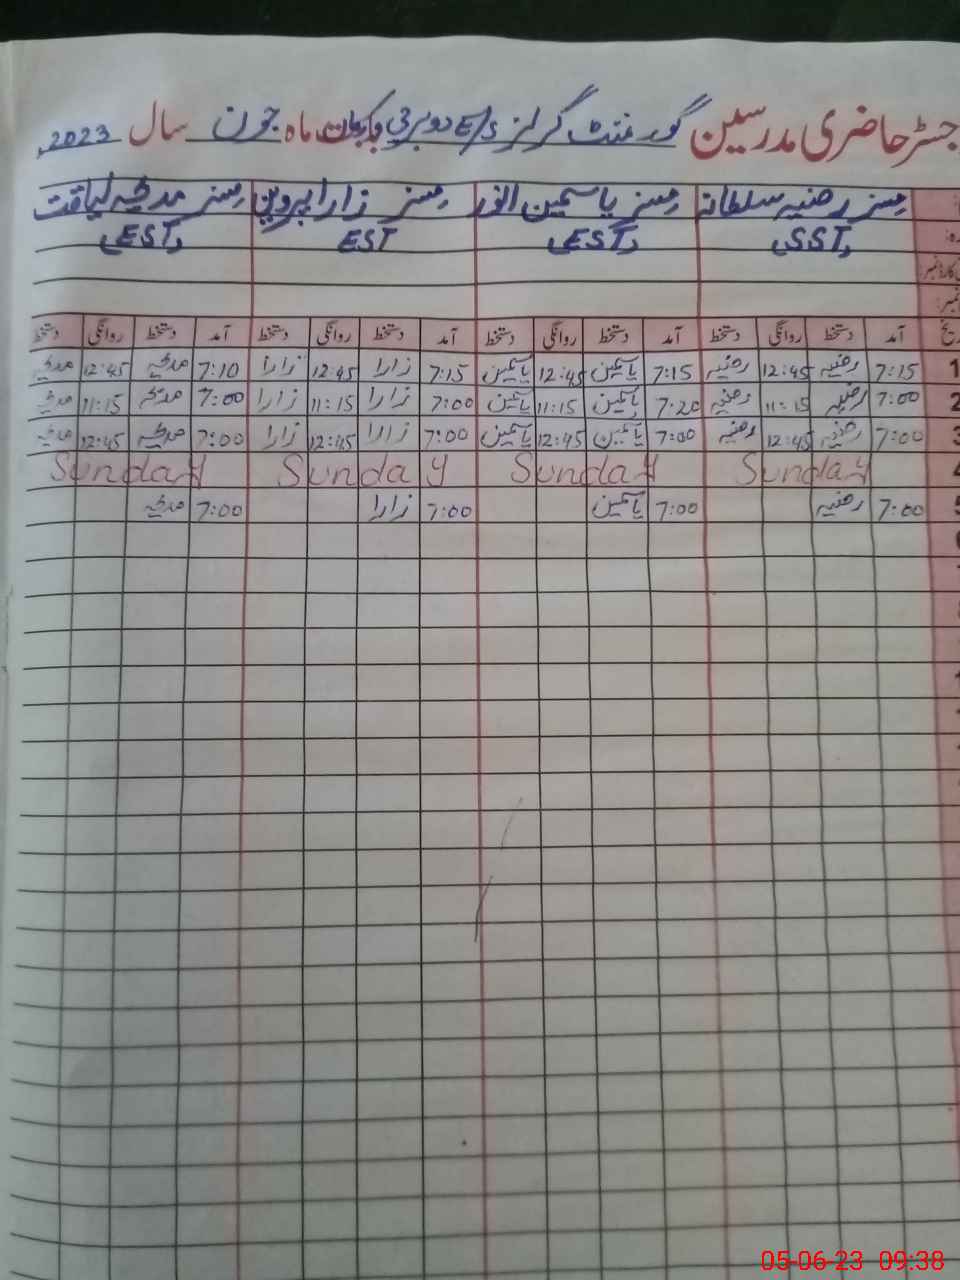 رجسٹر حاضری مدرسین گورنمنٹ گرلز E/S دوبرجی ماہ جون سال 2023ء
مسز رضیہ سلطانہ مسز یاسمین انور مسز زارا پروین مسز مدیحہ لیاقت
SST EST EST EST
آمد دستخط روانگی دستخط آمد دستخط روانگی دستخط آمد دستخط روانگی دستخط آمد دستخط روانگی دستخط
1 7:15 رضیہ 12:45 رضیہ 7:15 یاسمین 12:45 یاسمین 7:15 زارا 12:45 زارا 7:10 مدیحہ 12:45 مدیحہ
2 7:00 رضیہ 11:15 رضیہ 7:20 یاسمین 11:15 یاسمین 7:00 زارا 11:15 زارا 7:00 مدیحہ 11:15 مدیحہ
3 7:00 رضیہ 12:45 رضیہ 7:00 یاسمین 12:45 یاسمین 7:00 زارا 12:45 زارا 7:00 مدیحہ 12:45 مدیحہ
4 Sunday Sunday Sunday Sunday
5 7:00 رضیہ 7:00 یاسمین 7:00 زارا 7:00 مدیحہ
05-06-23 09:38